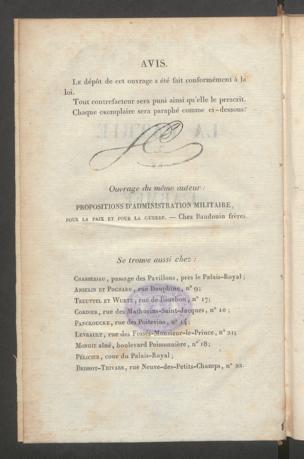 AVIS.
Le dépôt de cet ouvrage a été fait conformément à la
loi.
Tout contrefacteur sera puni ainsi qu'elle le prescrit.
Chaque exemplaire sera paraphé comme ci-dessous:
Ouvrage du même auteur :
PROPOSITIONS D'ADMINISTRATION MILITAIRE,
POUR LA PAIX ET POUR LA GUERRE. — Chez Baudouin frères.
Se trouve aussi chez :
CHASSERIAU, passage des Pavillons, près le Palais-Royal;
ANSELIN ET POCHARD, rue Dauphine, n° 9;
TREUTTEL ET WURTZ, rue de Bourbon, n° 17;
CORDIER, rue des Mathurins-Saint-Jacques, n° 10;
PANCKOUCKE, rue des Poitevins, n° 14;
LEVRAULT, rue des Fossés-Monsieur-le-Prince, n° 31;
MONGIE aîné, boulevard Poissonnière, n° 18;
PÉLICIER, cour du Palais-Royal;
BRISSOT-THIVARS, rue Neuve-des-Petits-Champs, n° 22.